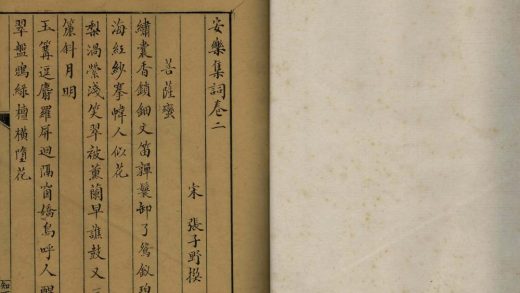 安樂集詞卷二
宋 張子野撰
菩薩蠻
繡囊香鎖鈿文笛嚲鬟卸了鴛釵
海紅紗拏幃人似花
梨渦縈淺笑翠被薰蘭早譙鼓又
簾斜月明
玉篝逗麝羅屏迴隔窗嬌鳥呼人醒
翠盤鴉綠檀橫墮花
知